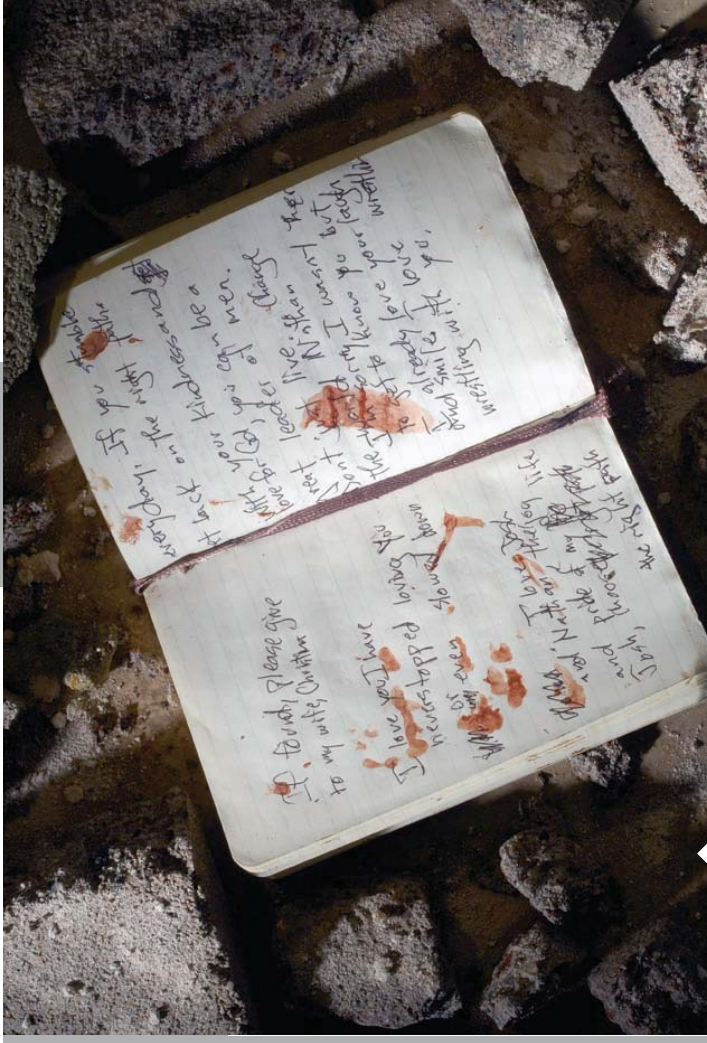 If found, please give
to my wife, Christina
I love you I have
never stopped loving you
or even slowing down
I love Josh
and Nathan
and Pride of my life
Josh, the right path
everyday. If you stumble
get back on the right path
With your kindness and
love for God, you can be a
great leader of men.
Don't just live, change
the Nathan
I'm sorry I wasn't there
to get to know you but
I already love your laugh
and smile. I love wrestlin
wrestling with you,